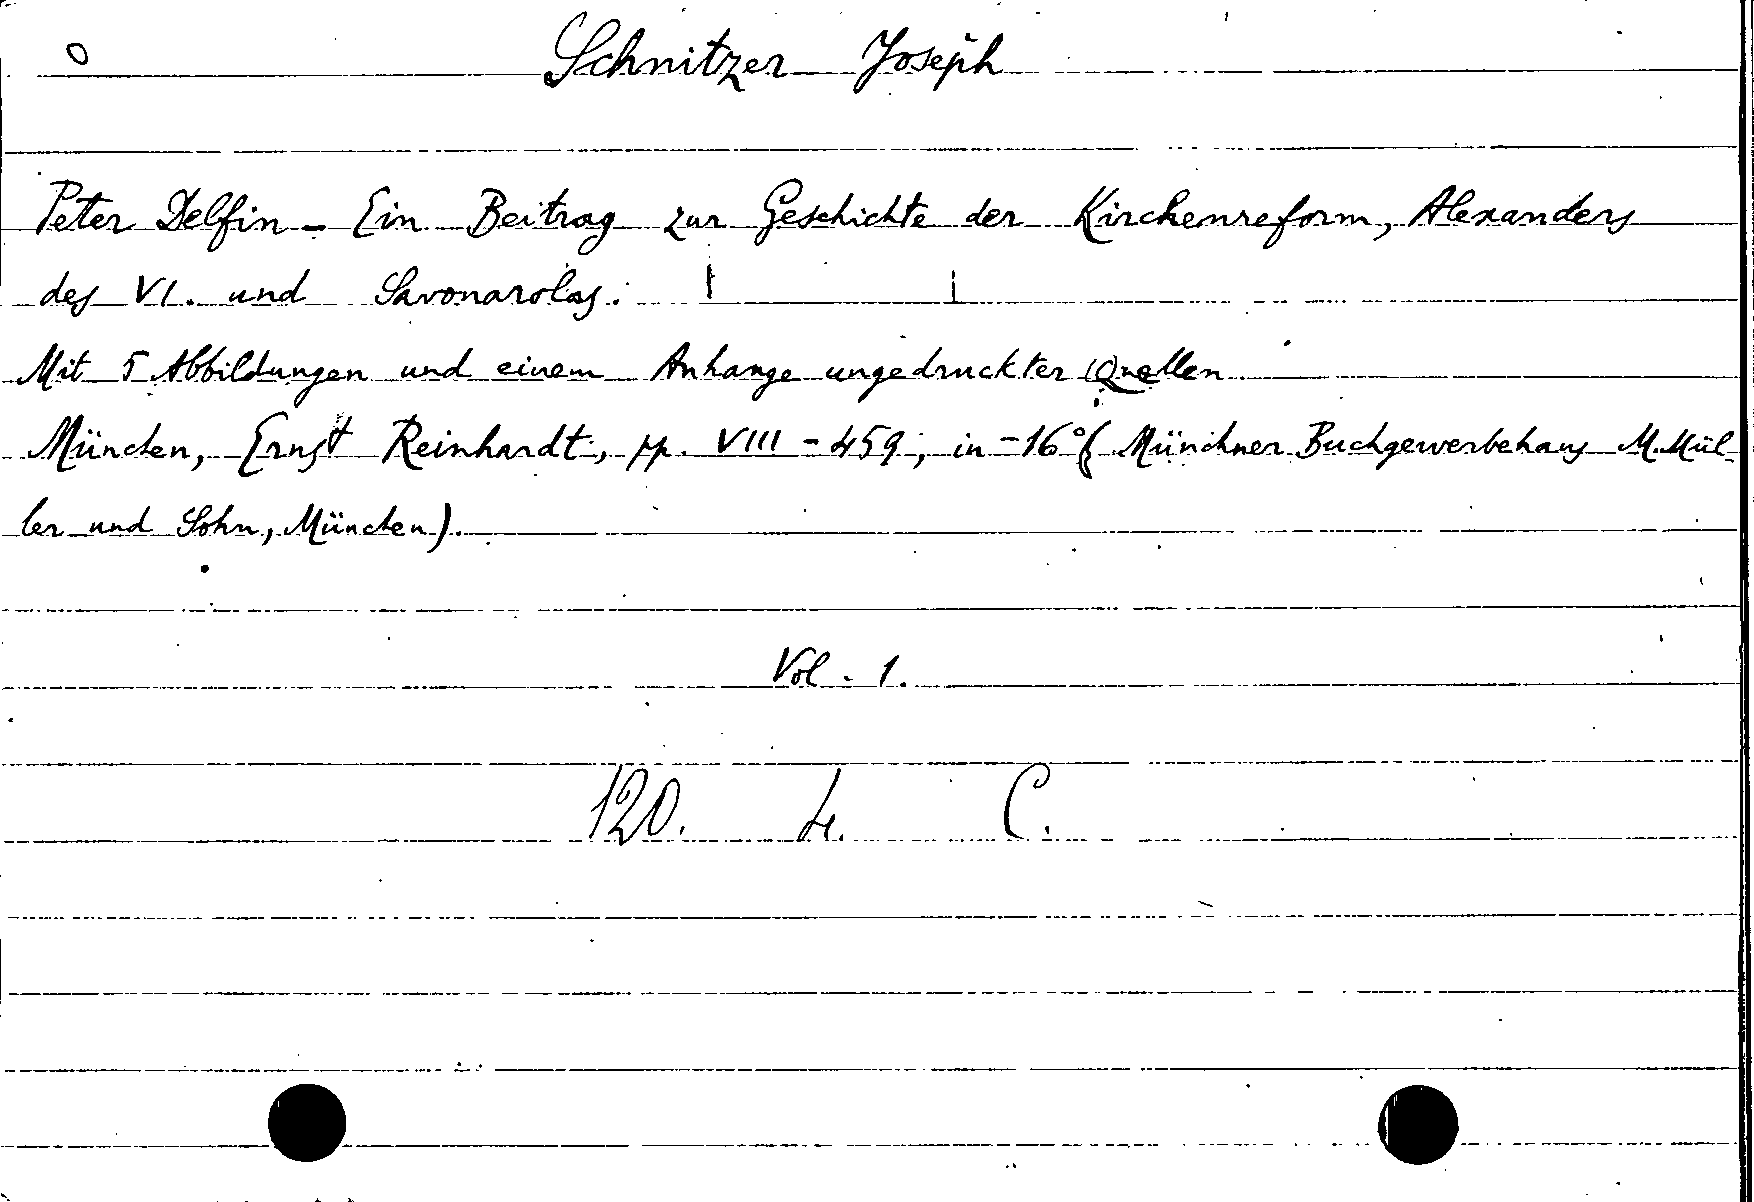 Schnitzer Joseph
Peter Delfin - Ein Beitrag zur Geschichte der Kirchenreform, Alexanders
des VI. und Savonarolas.
Mit 5 Abbildungen und einem Anhange ungedruckter Quellen
München, Ernst Reinhardt, pp. VIII - 459; in - 16° (Münchner Buchgewerbehaus M. Mül-
ler und Sohn, München).
Vol. 1.
120. C.